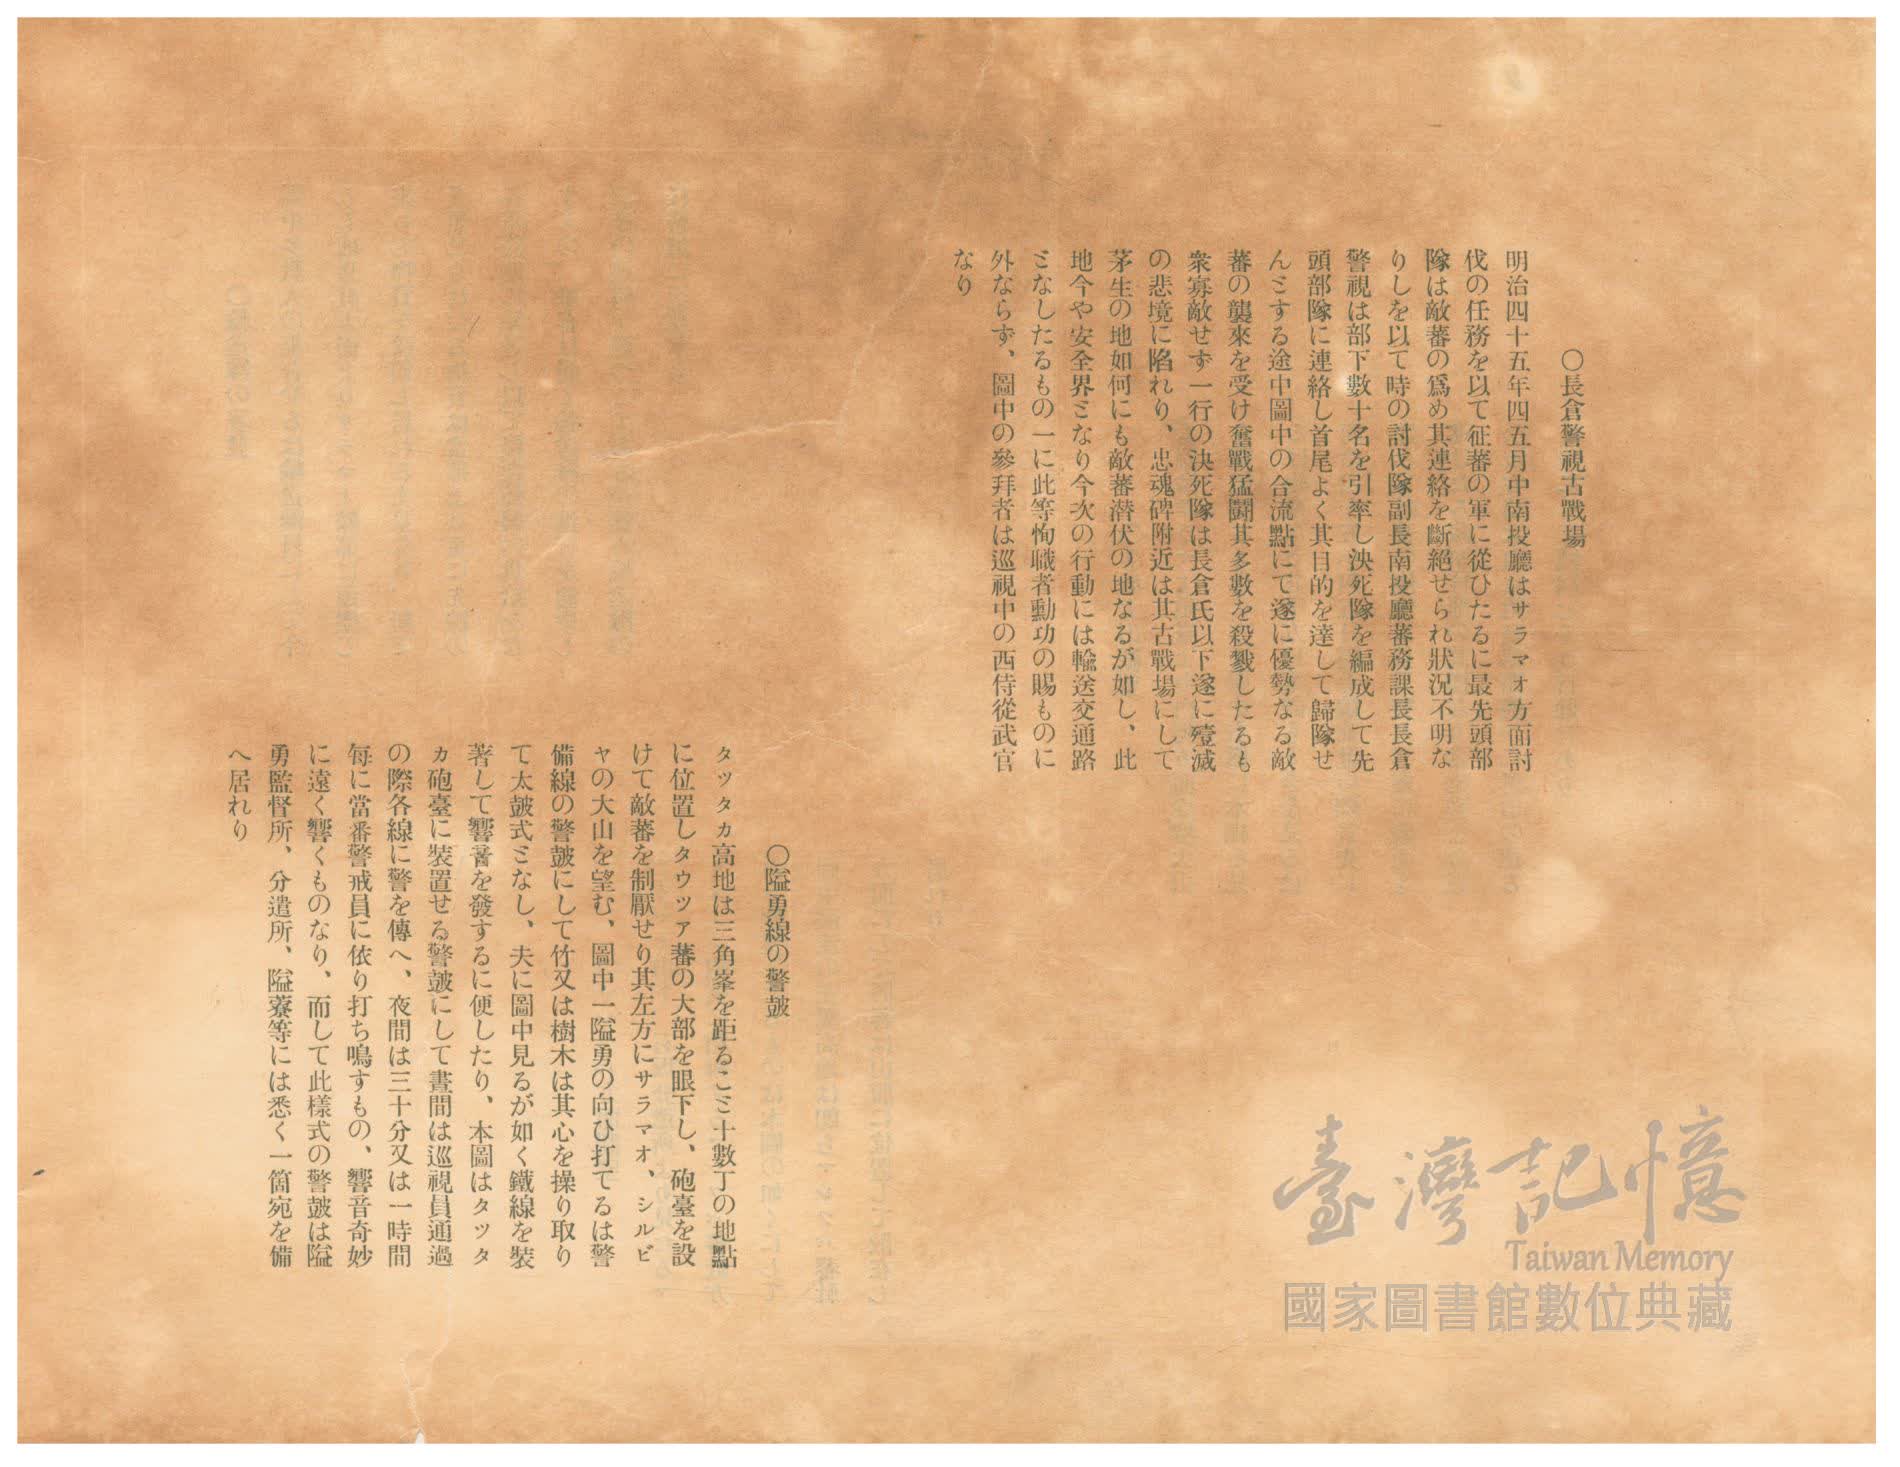 〇長倉警視古戰場
明治四十五年四五月中南投廳はサラマオ方面討
伐の任務を以て征蕃の軍に從ひたるに最先頭部
隊は敵蕃の爲め其連絡を斷絕せられ狀況不明な
りしを以て時の討伐隊副長南投廳蕃務課長長倉
警視は部下數十名を引率し决死隊を編成して先
頭部隊に連絡し首尾よく其目的を達して歸隊せ
んとする途中圖中の合流點にて遂に優勢なる敵
蕃の襲來を受け奮戰猛鬪其多數を殺戮したるも
衆寡敵せず一行の決死隊は長倉氏以下遂に殪滅
の悲境に陷れり、忠魂碑附近は其古戰場にして
茅生の地如何にも敵蕃潜伏の地なるが如し、此
地今や安全界となり今次の行動には輸送交通路
となしたるもの一に此等恂職者勳功の賜ものに
外ならず、圖中の參拜者は巡視中の西侍從武官
なり
〇隘勇線の警鼓
タツタカ高地は三角峯を距ること十數丁の地點
に位置しタウツア蕃の大部を眼下し、砲臺を設
けて敵蕃を制厭せり其左方にサラマオ、シルビ
ヤの大山を望む、圖中一隘勇の向ひ打てるは警
備線の警鼓にして竹又は樹木は其心を操り取り
て太鼓式となし、夫に圖中見るが如く鐵線を裝
著して響音を發するに便したり、本圖はタツタ
カ砲臺に裝置せる警鼓にして晝間は巡視員通過
の際各線に警を傳へ、夜間は三十分又は一時間
每に當番警戒員に依り打ち鳴すもの、響音奇妙
に遠く響くものなり、而して此樣式の警鼓は隘
勇監督所、分遣所、隘藔等には悉く一箇宛を備
へ居れり
臺灣記憶
Taiwan Memory
國家圖書館數位典藏